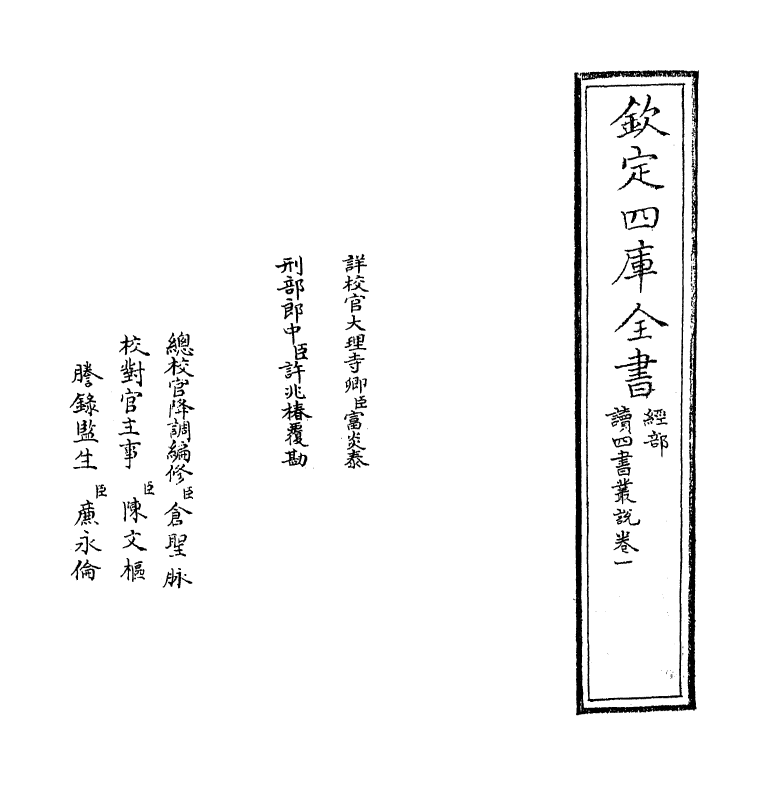 欽定四庫全書
經部
讀四書叢說卷一
詳校官大理寺卿臣富炎泰
刑部郎中臣許兆椿覆勘
總校官降調編修臣倉聖脉
校對官主事臣陳文樞
謄錄監生臣廉永倫